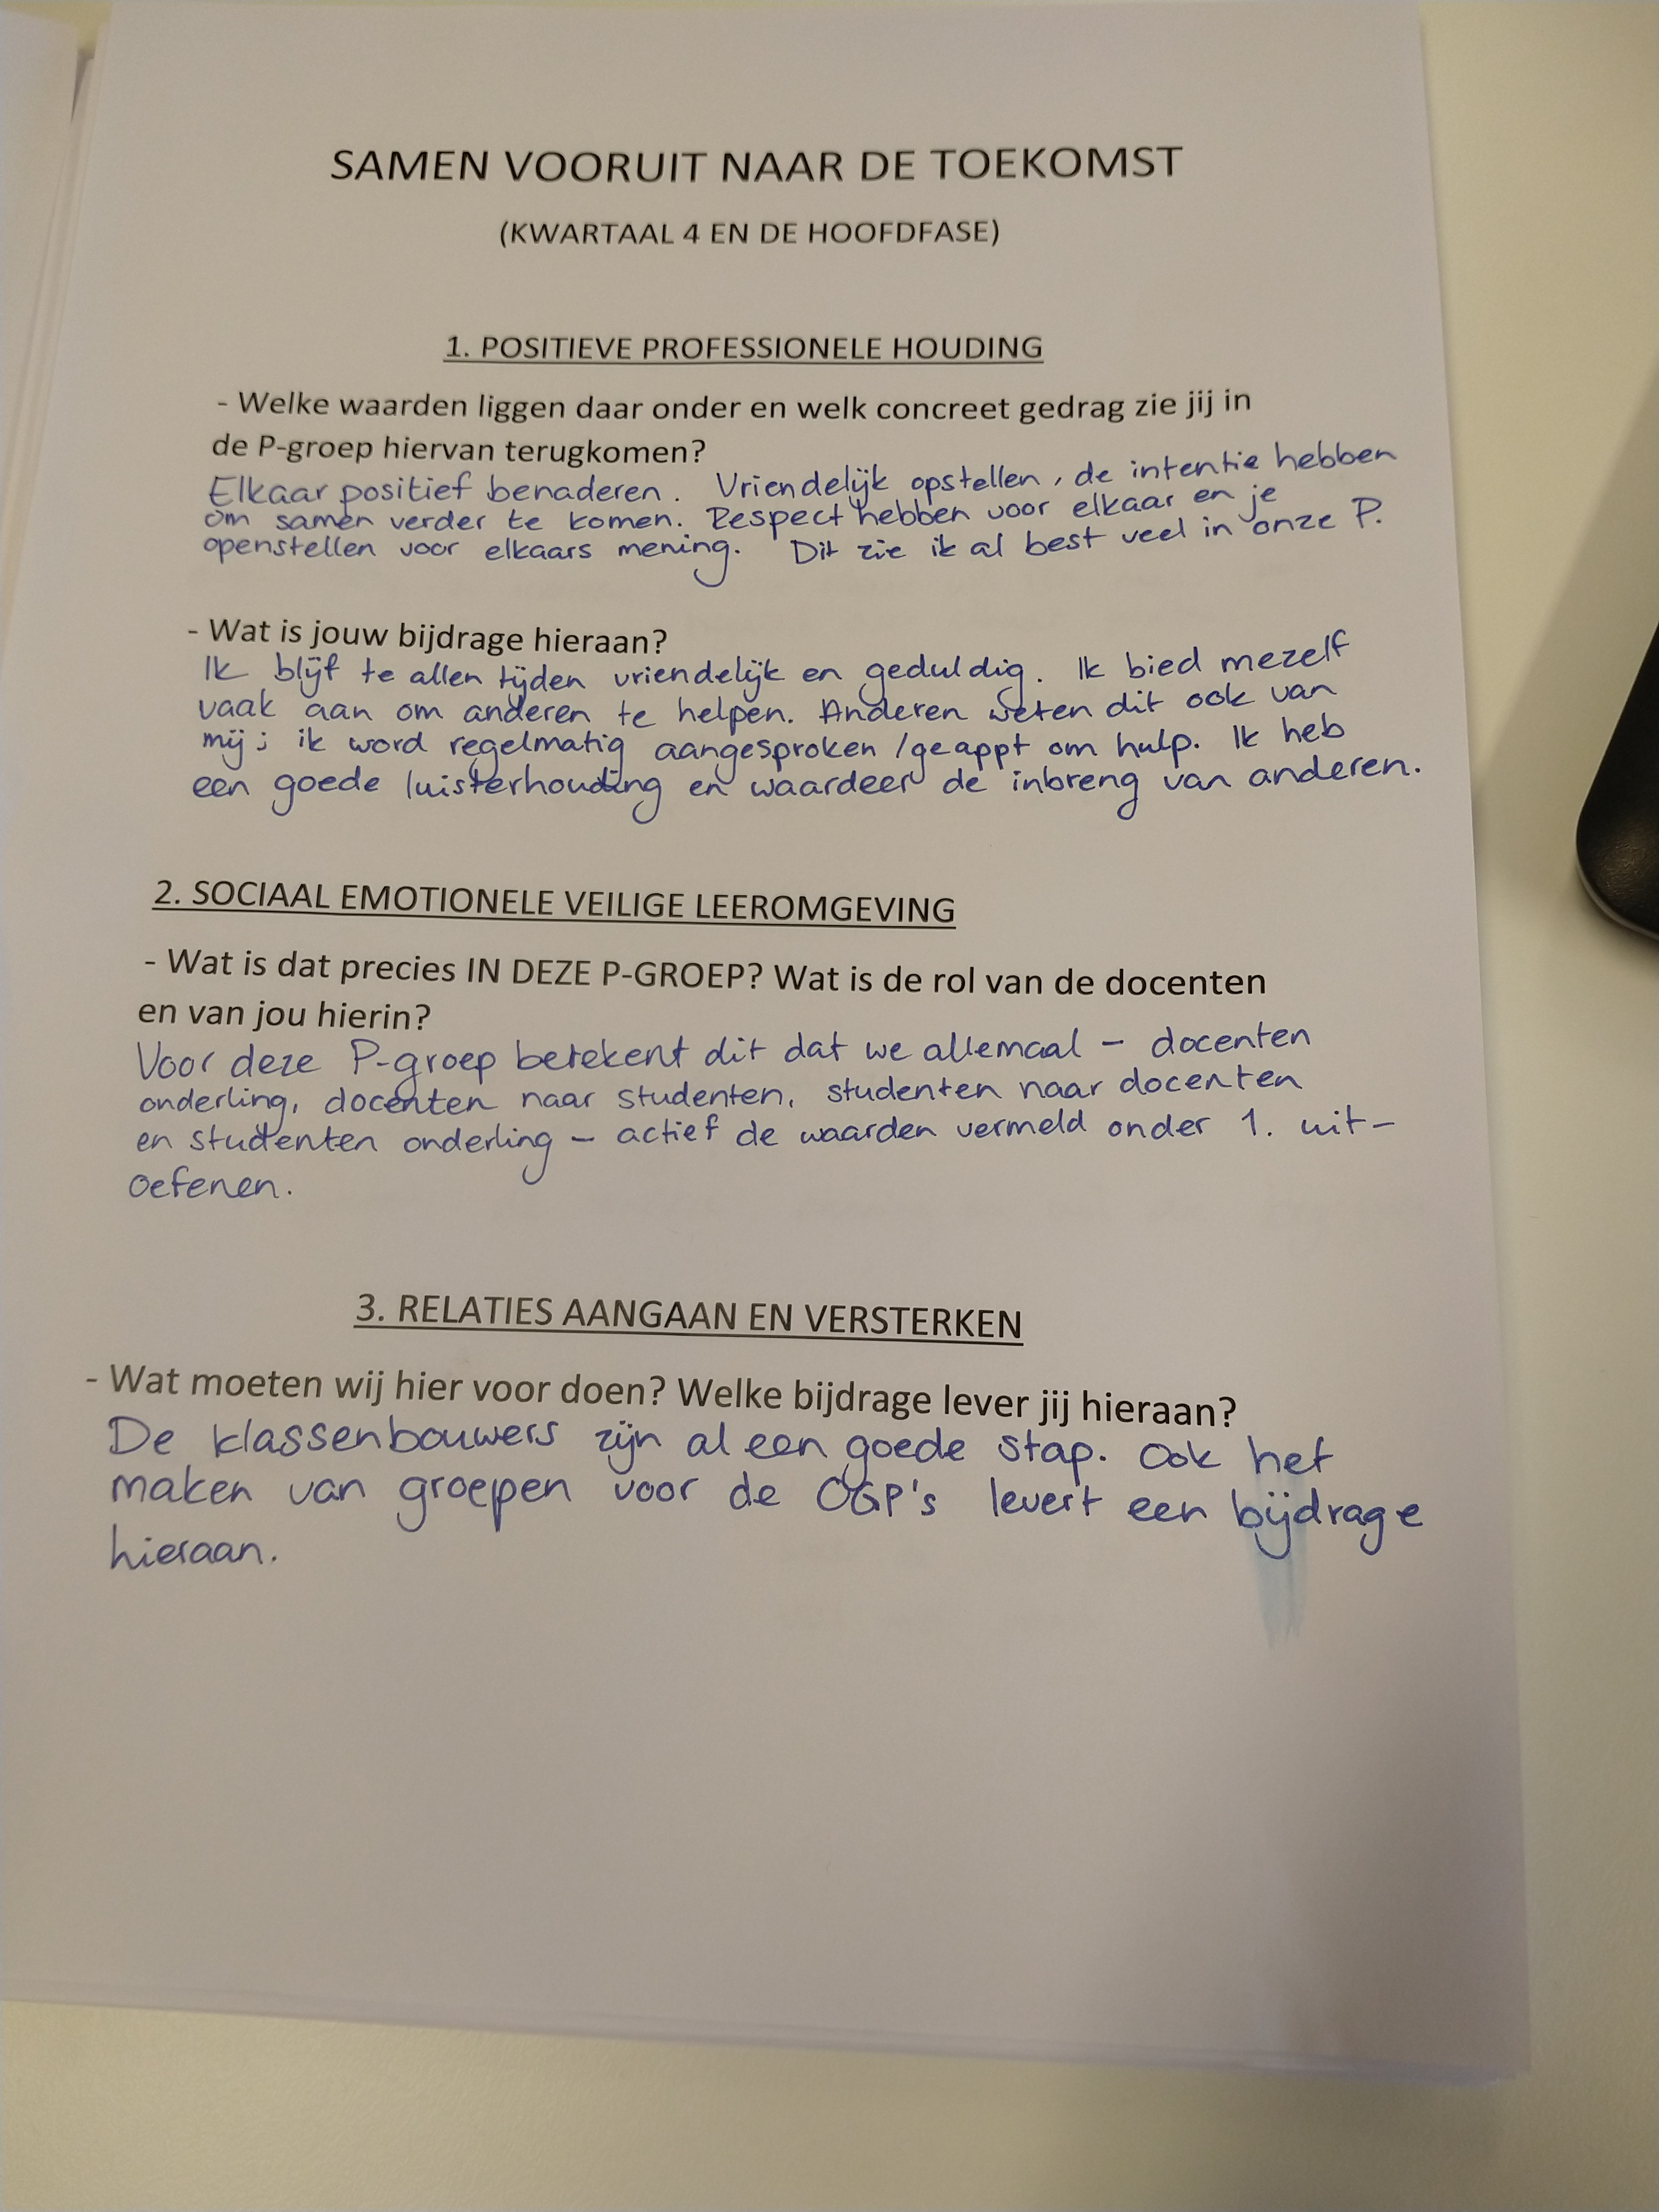 SAMEN VOORUIT NAAR DE TOEKOMST
(KWARTAAL 4 EN DE HOOFDFASE)
1. POSITIEVE PROFESSIONELE HOUDING
- Welke waarden liggen daar onder en welk concreet gedrag zie jij in
de P-groep hiervan terugkomen?
Elkaar positief benaderen. Vriendelijk opstellen, de intentie hebben
om samen verder te komen. Respect hebben voor elkaar en je
openstellen voor elkaars mening. Dit zie ik al best veel in onze P.
- Wat is jouw bijdrage hieraan?
Ik blijf te allen tijden vriendelijk en geduldig. Ik bied mezelf
vaak aan om anderen te helpen. Anderen weten dit ook van
mij; ik word regelmatig aangesproken/geappt om hulp. Ik heb
een goede luisterhouding en waardeer de inbreng van anderen.
2. SOCIAAL EMOTIONELE VEILIGE LEEROMGEVING
- Wat is dat precies IN DEZE P-GROEP? Wat is de rol van de docenten
en van jou hierin?
Voor deze P-groep betekent dit dat we allemaal - docenten
onderling, docenten naar studenten, studenten naar docenten
en studenten onderling - actief de waarden vermeld onder 1. uit-
oefenen.
3. RELATIES AANGAAN EN VERSTERKEN
- Wat moeten wij hier voor doen? Welke bijdrage lever jij hieraan?
De klassenbouwers zijn al een goede stap. Ook het
maken van groepen voor de OGP's levert een bijdrage
hieraan.